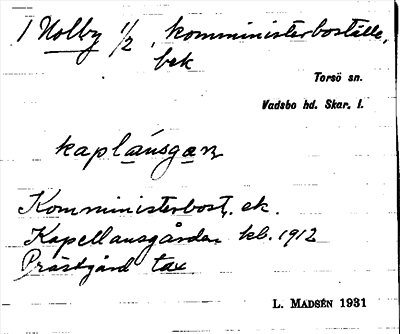 1 Nolby 1/2, komministerboställe,
bek
Torsö sn.
Vadsbo hd. Skar. l.
kaplánsgaɴ
Komministerbost. ek.
Kapellansgården kb. 1912
Prästgård tax
L. MADSÉN 1931